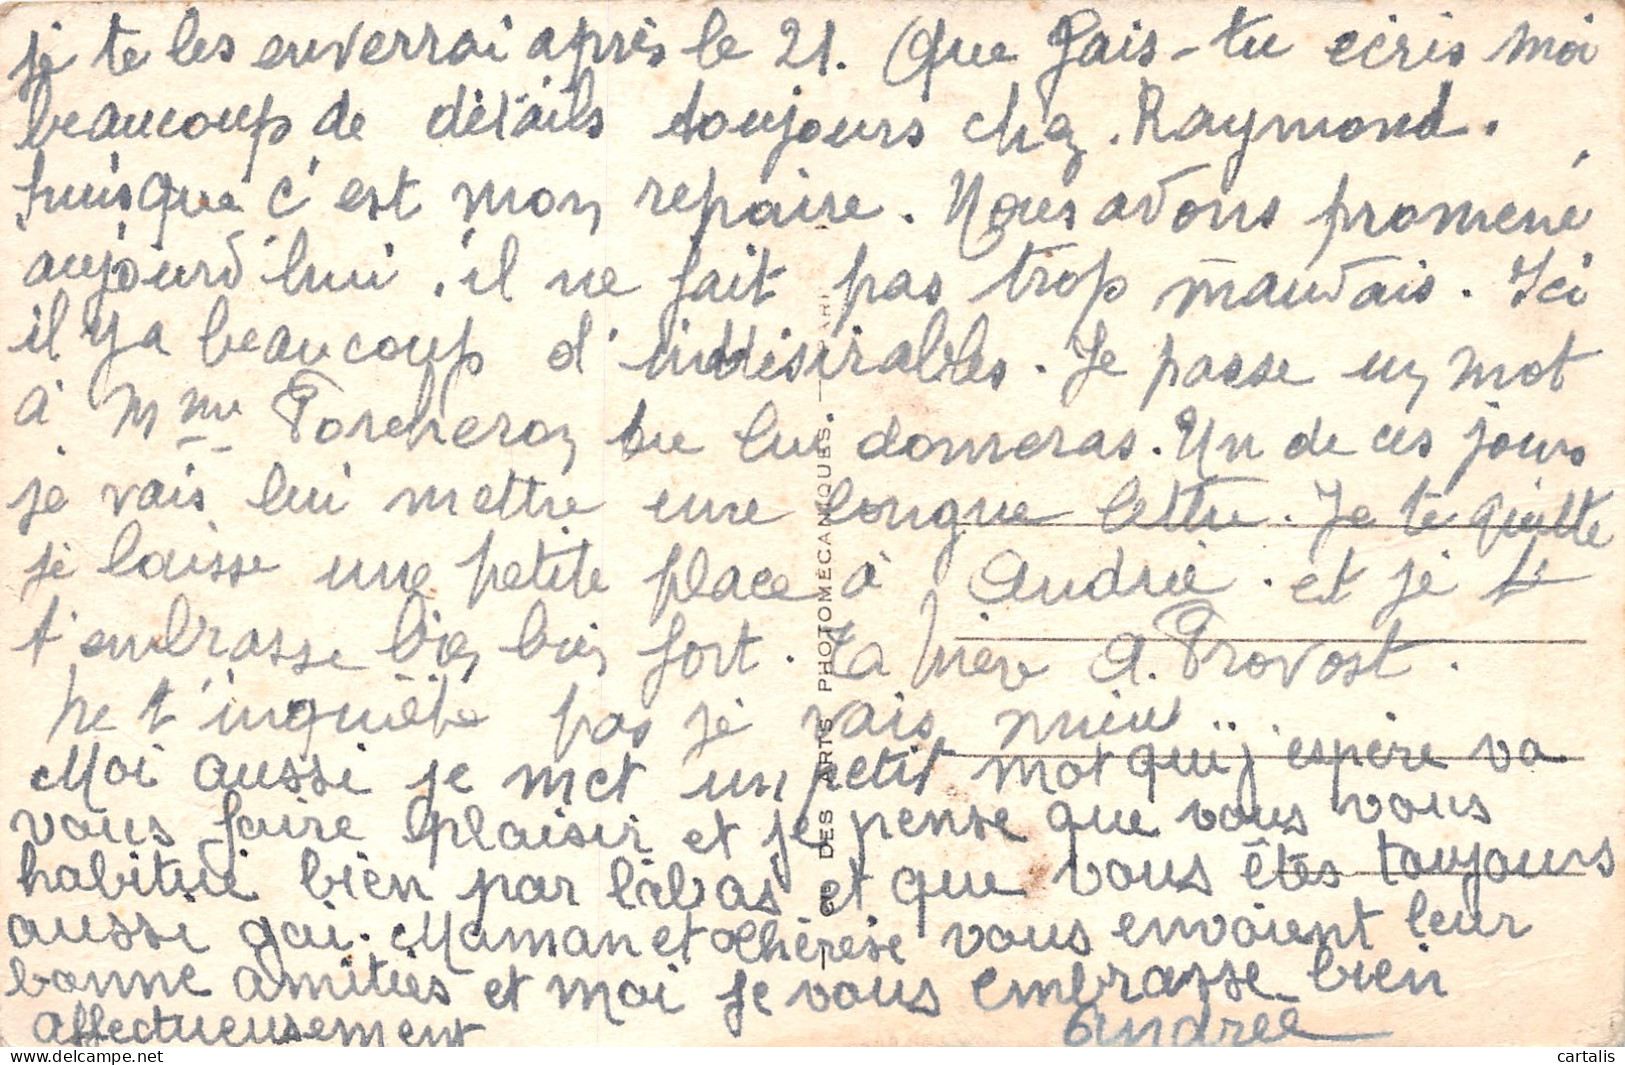 je te les enverrai après le 21. Que fais-tu ecris moi
beaucoup de détails toujours chez. Raymond.
puisque c'est mon repaire. Nous avons promené
aujourd'hui. il ne fait pas trop mauvais. Ici
il y a beaucoup d'indésirables. Je passe un mot
à Mme Porcheron tu lui donneras. Un de ces jours
je vais lui mettre une longue lettre. Je te quitte
je laisse une petite place à Andrée. et je t
t'embrasse bien bien fort. Ta Mère A. Provost.
Ne t'inquiète pas je vais mieux
Moi aussi je met un petit mot qui j'espère va
vous faire plaisir et je pense que vous vous
habitué bien par làbas et que vous êtes toujours
aussi gai. Maman et Thérèse vous envoient leur
bonne amitiés et moi je vous embrasse bien
affectueusement Andrée
DES ARTS PHOTOMECANIQUES.
cartalis